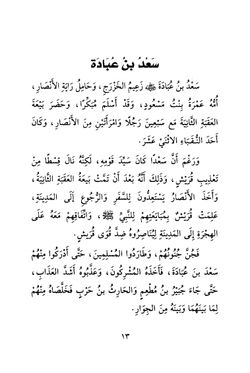 سَعْدُ بنُ عُبَادَة
سَعْدُ بنُ عُبَادَةَ ﷺ زَعِيمُ الخَزْرَجِ، وَحَامِلُ رَايَةِ الأَنْصَارِ،
أُمُّهُ عَمْرَةُ بِنْتُ مَسْعُودٍ، وَقَدْ أَسْلَمَ مُبَكِّرًا، وَحَضَرَ بَيْعَةَ
العَقَبَةِ الثَّانِيَةَ مَع سَبْعِينَ رَجُلًا وَامْرَأَتَيْنِ مِنَ الأَنْصَارِ، وَكَانَ
أَحَدَ النُّقَبَاءِ الاثْنَيْ عَشَرَ.
وَرَغْمَ أَنَّ سَعْدًا كَانَ سَيِّدَ قَوْمِهِ، لَكِنَّهُ نَالَ قِسْطًا مِنْ
تَعْذِيبِ قُرَيْشٍ، وَذَلِكَ أَنَّهُ بَعْدَ أَنْ تَمَّتْ بَيْعَةُ العَقَبَةِ الثَّانِيَةُ،
وَأَخَذَ الأَنْصَارُ يَسْتَعِدُّونَ لِلسَّفَرِ وَالرُّجُوعِ إِلَى المَدِينَةِ،
عَلِمَتْ قُرَيْشٌ بِمُبَايَعَتِهِمْ لِلنَّبِيِّ ﷺ، وَاتِّفَاقِهِمْ مَعَهُ عَلَى
الهِجْرَةِ إِلَى المَدِينَةِ لِيُنَاصِرُوهُ ضِدَّ قُوَى قُرَيْشٍ.
فَجُنَّ جُنُونُهُمْ، وَطَارَدُوا المُسْلِمِينَ، حَتَّى أَدْرَكُوا مِنْهُمْ
سَعْدَ بنَ عُبَادَةَ، فَأَخَذَهُ المُشْرِكُونَ، وَعَذَّبُوهُ أَشَدَّ العَذَابِ،
حَتَّى جَاءَ جُبَيْرُ بنُ مُطْعِمٍ وَالحَارِثُ بنُ حَرْبٍ فَخَلَّصَاهُ مِنْهُمْ
لِمَا بَيْنَهُمَا وَبَيْنَهُ مِنَ الجِوَارِ.
١٣